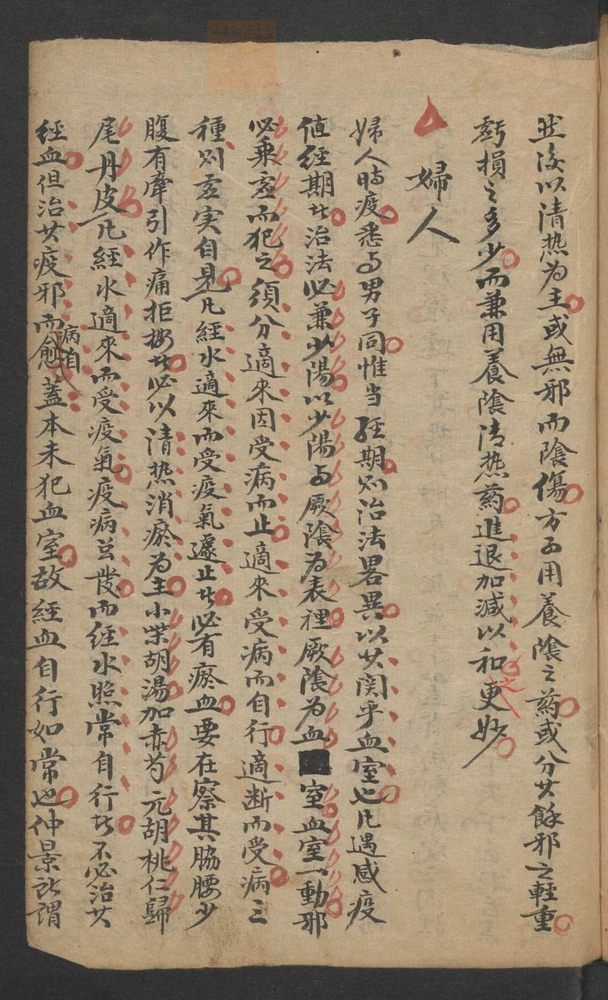 並湏以清热为主或無邪而陰傷方可用養陰之药或分其餘邪之輕重
虧損之多少而兼用養陰清热药進退加减以和之更妙
婦人
婦人時疫悉与男子同惟当経期則治法畧異以其関乎血室也凡遇感疫
值経期者治法必兼少陽以少陽与厥陰为表裡厥陰为血室血室一動邪
必乘虚而犯之須分適來因受病而止適來受病而自行適断而受病三
種則虚实自見凡經水適來而受疫氣遽止者必有瘀血要在察其脇腰少
腹有牽引作痛拒按者必以清热消瘀为主小柴胡湯加赤芍元胡桃仁歸
尾丹皮凡經水適來而受疫氣疫病並發而經水照常自行者不必治其
經血但治其疫邪而病自愈蓋本未犯血室故經血自行如常也仲景所謂